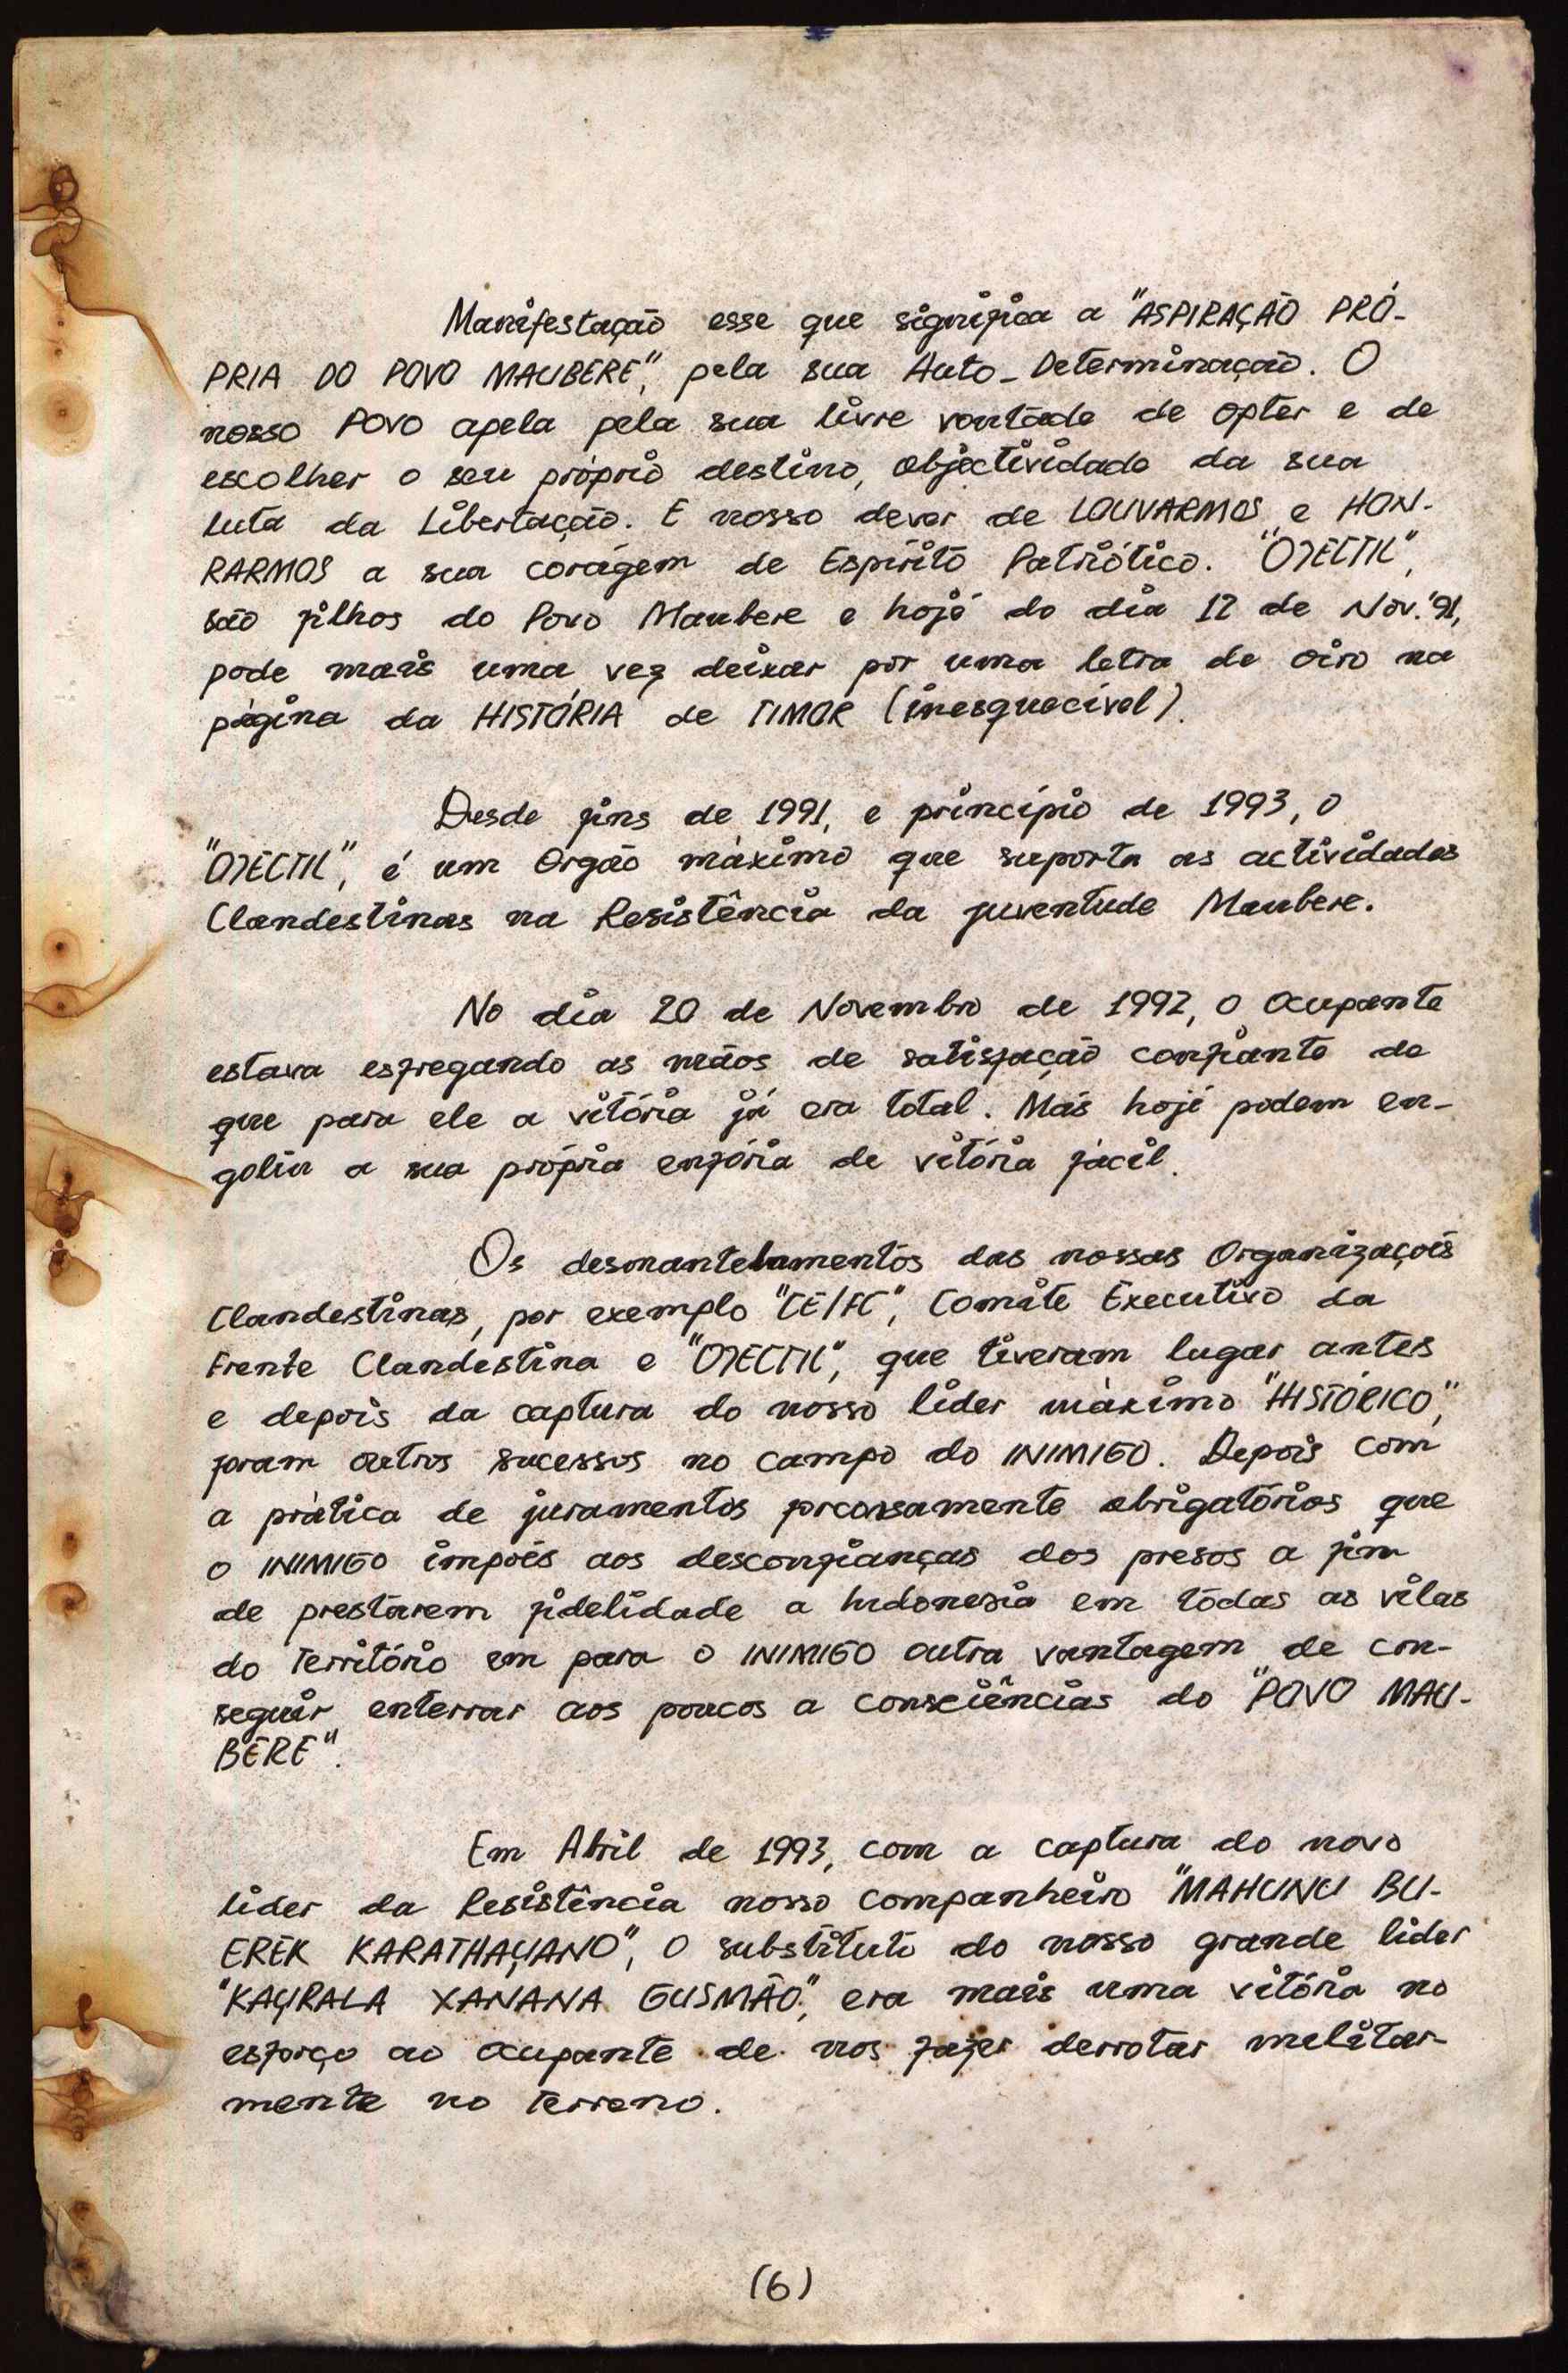 Manifestação esse que significa a "ASPIRAÇÃO PRÓ-
PRIA DO POVO MAUBERE", pela sua Auto-Determinação. O
nosso POVO apela pela sua livre vontade de opter e de
escolher o seu próprio destino, objectividade da sua
luta da Libertação. E nosso dever de LOUVARMOS e HON-
RARMOS a sua corágem de Espírito Patriótico. "OJECTIL",
são filhos do Povo Maubere e hojé do dia 12 de Nov. '91,
pode mais uma vez deixar por uma letra de oiro na
página da HISTÓRIA de TIMOR (inesquecível).
Desde fins de 1991, e princípio de 1993, o
"OJECTIL", é um Orgão máximo que suporta as actividades
Clandestinas na Resistência da juventude Maubere.
No dia 20 de Novembro de 1992, o Ocupante
estava esfregando as mãos de satisfação confiante de
que para ele a vitória já era total. Más hojé podem en-
golir a sua própria enfória de vitória fácil.
Os desmantelamentos das nossas Organizações
Clandestinas, por exemplo "CE/FC", Comite Executivo da
Frente Clandestina e "OJECTIL", que tiveram lugar antes
e depois da captura do nosso líder máximo "HISTÓRICO",
foram outros sucessos no campo do INIMIGO. Depois com
a prática de juramentos forcosamente obrigatórios que
o INIMIGO impoés aos desconfianças dos presos a fim
de prestarem fidelidade a Indonesia em todas as vilas
do Território em para o INIMIGO outra vantagem de con-
seguir enterrar aos poucos a consciências do "POVO MAU-
BERE".
Em Abril de 1993, com a captura do novo
líder da Resistência nosso companheiro "MAHUNU BU-
EREK KARATHAYANO", o substituto do nosso grande lider
"KAYRALA XANANA GUSMÃO", era mais uma vitória no
esforço ao ocupante de nos fazer derrotar melitar-
mente no terreno.
(6)